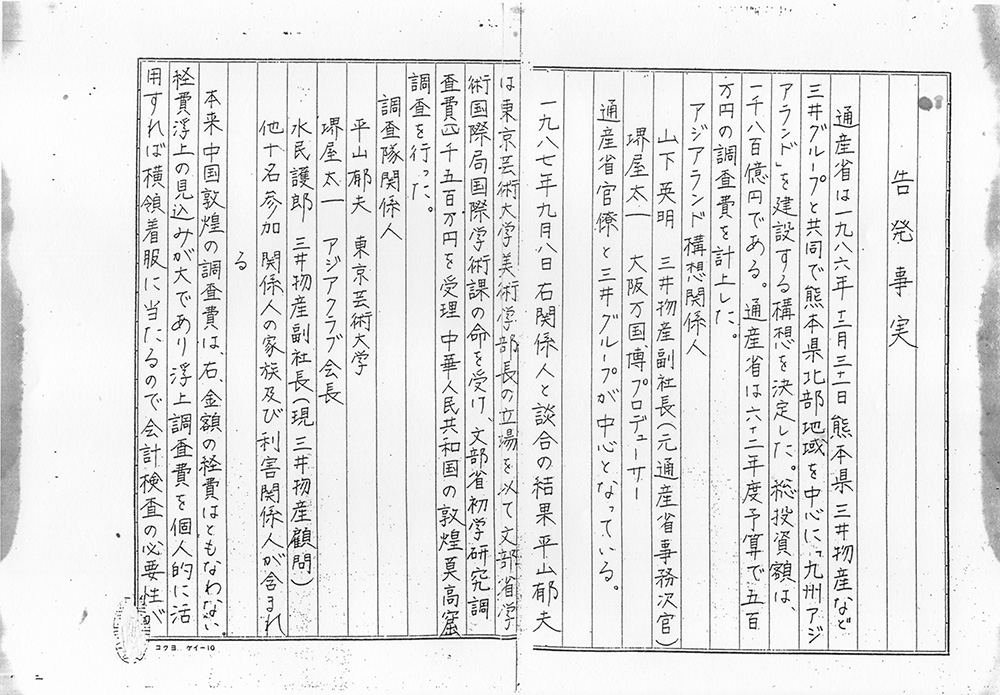 告発事実
通産省は一九八六年十二月三十一日熊本県三井物産など
三井グループと共同で熊本県北部地域を中心に「九州アジ
アランド」を建設する構想を決定した。総投資額は、
一千八百億円である。通産省は六十二年度予算で五百
万円の調査費を計上した。
アジアランド構想関係人
山下英明 三井物産副社長(元通産省事務次官)
堺屋太一 大阪万国博プロデューサー
通産省官僚と三井グループが中心となっている。
一九八七年九月八日右関係人と談合の結果平山郁夫
は東京芸術大学美術学部長の立場を以て文部省学
術国際局国際学術課の命を受け、文部省初学研究調
査費四千五百万円を受理 中華人民共和国の敦煌莫高窟
調査を行った。
調査隊関係人
平山郁夫 東京芸術大学
堺屋太一 アジアクラブ会長
水民護郎 三井物産副社長(現三井物産顧問)
他十名参加 関係人の家族及び利害関係人が含まれ
る
本来中国敦煌の調査費は、右、金額の経費はともなわない。
経費浮上の見込みが大であり浮上調査費を個人的に活
用すれば横領着服に当たるので会計検査の必要性が
コクヨ ケイー10